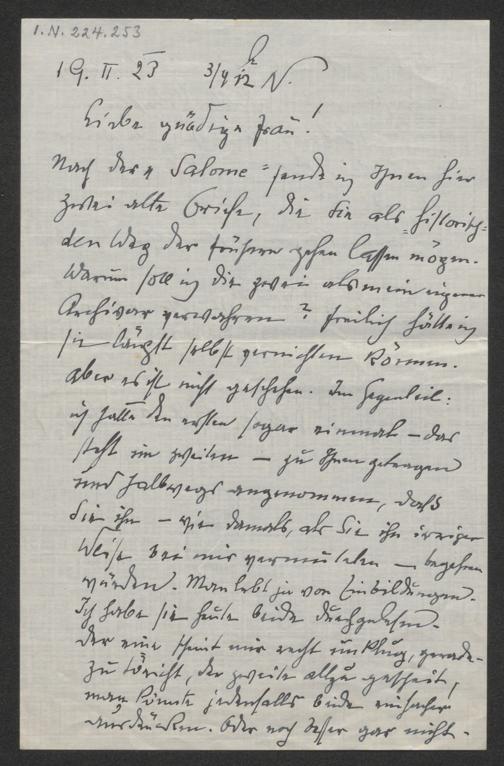 I.N. 224.253
19. II. 23 3/4 12 h N.
Liebe gnädige Frau!
Nach der „Salome" sende ich Ihnen hier
zwei alte Briefe, die Sie als „historisch"
den Weg der frühern gehen lassen mögen.
Warum soll ich die zwei als mein eigener
Archivar verwahren? Freilich hätte ich
sie längst selbst vernichten können.
Aber es ist nicht geschehen. Im Gegenteil:
ich hatte den ersten sogar einmal – das
steht im zweiten – zu Ihnen getragen
und halbwegs angenommen, daß
Sie ihn – wie damals, als Sie ihn irriger
Weise bei mir vermuteten – begehren
würden. Man lebt ja von Einbildungen.
Ich habe sie heute beide durchgelesen.
Der eine scheint mir recht unklug, gerade-
zu töricht, der zweite allzu gescheit,
man könnte jedenfalls beide einfacher
ausdrücken. Oder noch besser gar nicht.